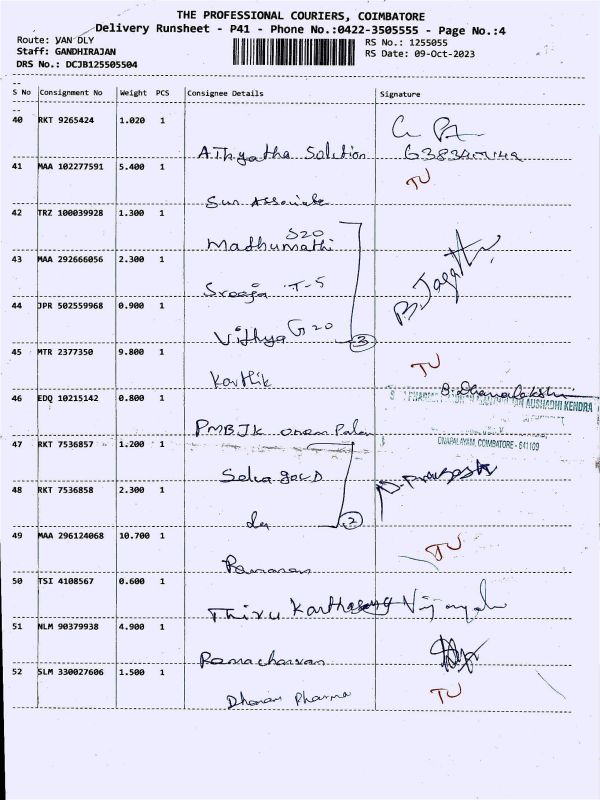 THE PROFESSIONAL COURIERS, COIMBATORE
Delivery Runsheet - P41 - Phone No.:0422-3505555 - Page No.:4
Route: VAN DLY
Staff: GANDHIRAJAN
DRS No.: DCJB125505504
RS No.: 1255055
RS Date: 09-Oct-2023
S No Consignment No Weight PCS Consignee Details Signature
40 RKT 9265424 1.020 1
AThyatha Solution
41 MAA 102277591 5.400 1 TU
Sun Associate
42 TRZ 100039928 1.300 1
Madhumathi S20
43 MAA 292666056 2.300 1
Sreeja T-5 B.Jagath
44 JPR 502559968 0.900 1
Vithya G20 3
45 MTR 2377350 9.800 1 TU
Karthik
46 EDQ 10215142 0.800 1 AUSHADHI KENDRA
PMBJK
47 RKT 7536857 1.200 1 ONAPALAYAM, COIMBATORE - 641109
Selva
48 RKT 7536858 2.300 1
2
49 MAA 296124068 10.700 1 TU
50 TSI 4108567 0.600 1
Thiru
51 NLM 90379938 4.900 1
52 SLM 330027606 1.500 1 TU
Dhanam Pharma